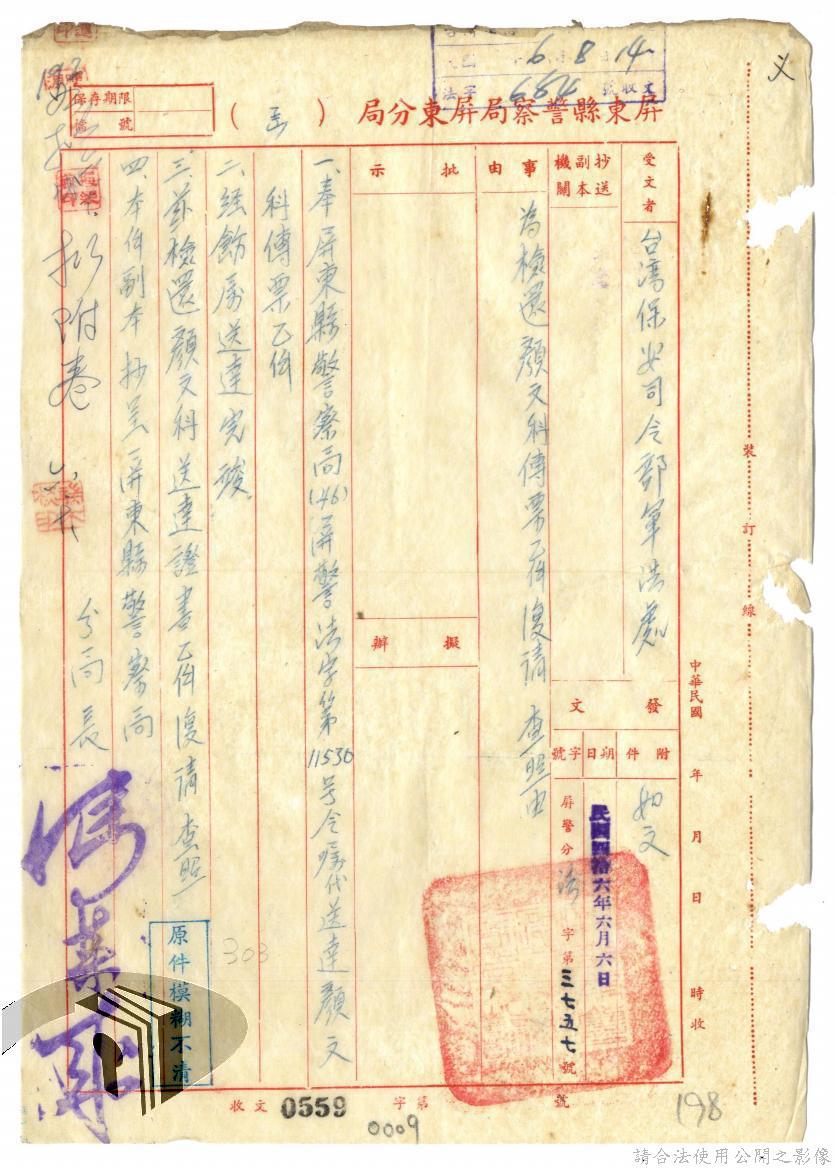 屏東縣警察局屏東分局（函）
保存期限
檔號
6 8 14
法字 684 號收文
受文者
台灣保安司令部軍法處
抄送副本機關
事由
為檢還顏文科傳票乙份復請 查照由
批示
擬辦
發文
附件
如文
日期
民國四拾六年六月六日
字號
屏警分法字第三七五七號
一、奉屏東縣警察局(46)屏警法字第11530号令囑代送達顏文
科傳票乙份
二、經飭屬送達完竣
三、茲檢還顏文科送達證書乙份復請 查照
四、本件副本抄呈屏東縣警察局
分局長
擬附卷
中華民國 年 月 日 時收
裝訂線
原件模糊不清
303
收文 0559 字第 號
0009
198
請合法使用公開之影像